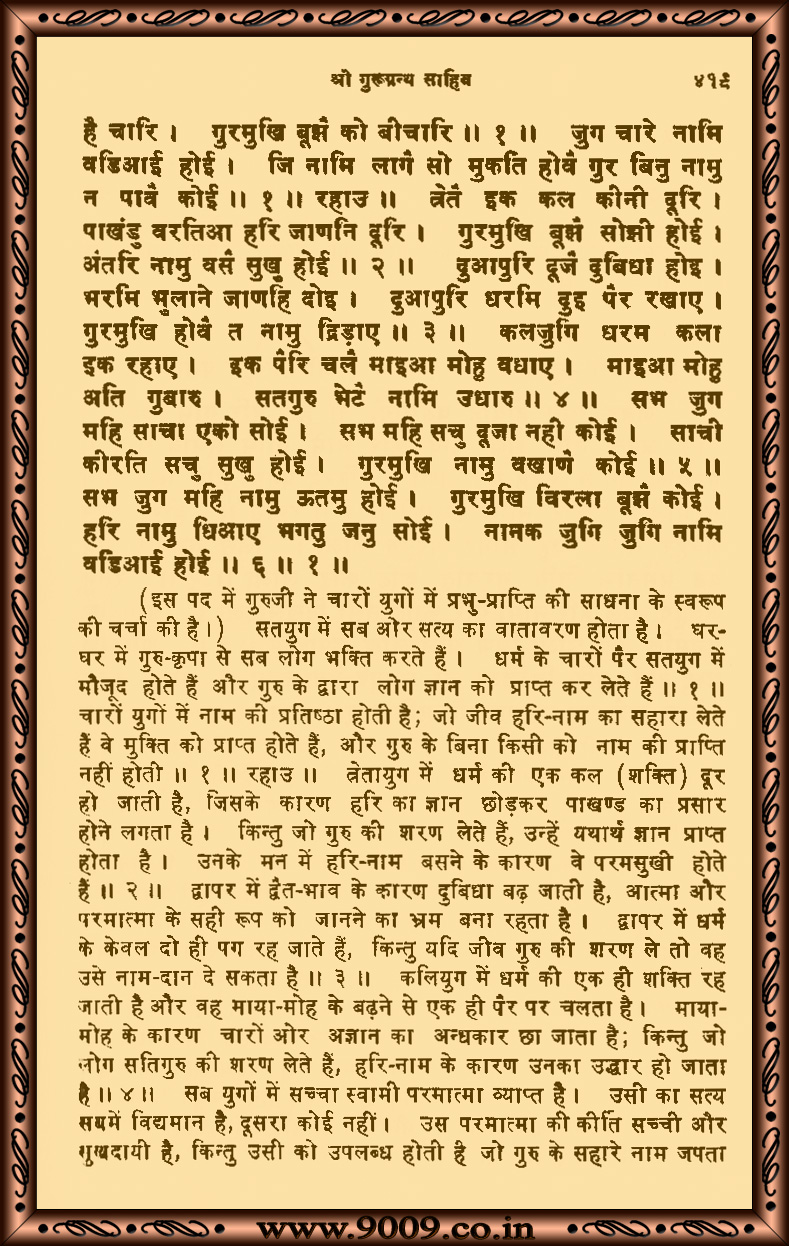 श्री गुरूग्रन्थ साहिब ४१९
है चारि । गुरमुखि बूझै को बीचारि ॥ १ ॥ जुग चारे नामि
वडिआई होई । जि नामि लागै सो मुकति होवै गुर बिनु नामु
न पावै कोई ॥ १ ॥ रहाउ ॥ त्रेतै इक कल कीनी दूरि ।
पाखंडु वरतिआ हरि जाणनि दूरि । गुरमुखि बूझै सोझी होई ।
अंतरि नामु वसै सुखु होई ॥ २ ॥ दुआपुरि दूजै दुबिधा होइ ।
भरमि भुलाने जाणहि दोइ । दुआपुरि धरमि दुइ पैर रखाए ।
गुरमुखि होवै त नामु द्रिड़ाए ॥ ३ ॥ कलजुगि धरम कला
इक रहाए । इक पैरि चलै माइआ मोहु वधाए । माइआ मोहु
अति गुबारु । सतगुरु भेटै नामि उधारु ॥ ४ ॥ सभ जुग
महि साचा एको सोई । सभ महि सचु दूजा नही कोई । साची
कीरति सचु सुखु होई । गुरमुखि नामु वखाणै कोई ॥ ५ ॥
सभ जुग महि नामु ऊतमु होई । गुरमुखि विरला बूझै कोई ।
हरि नामु धिआए भगतु जनु सोई । नामक जुगि जुगि नामि
वडिआई होई ॥ ६ ॥ १ ॥
(इस पद में गुरुजी ने चारों युगों में प्रभु-प्राप्ति की साधना के स्वरूप
की चर्चा की है।) सतयुग में सब ओर सत्य का वातावरण होता है । घर-
घर में गुरु-कृपा से सब लोग भक्ति करते हैं । धर्म के चारों पैर सतयुग में
मौजूद होते हैं और गुरु के द्वारा लोग ज्ञान को प्राप्त कर लेते हैं ॥ १ ॥
चारों युगों में नाम की प्रतिष्ठा होती है; जो जीव हरि-नाम का सहारा लेते
हैं वे मुक्ति को प्राप्त होते हैं, और गुरु के बिना किसी को नाम की प्राप्ति
नहीं होती ॥ १ ॥ रहाउ ॥ त्रेतायुग में धर्म की एक कल (शक्ति) दूर
हो जाती है, जिसके कारण हरि का ज्ञान छोड़कर पाखण्ड का प्रसार
होने लगता है । किन्तु जो गुरु की शरण लेते हैं, उन्हें यथार्थ ज्ञान प्राप्त
होता है । उनके मन में हरि-नाम बसने के कारण वे परमसुखी होते
हैं ॥ २ ॥ द्वापर में द्वैत-भाव के कारण दुबिधा बढ़ जाती है, आत्मा और
परमात्मा के सही रूप को जानने का भ्रम बना रहता है । द्वापर में धर्म
के केवल दो ही पग रह जाते हैं, किन्तु यदि जीव गुरु की शरण ले तो वह
उसे नाम-दान दे सकता है ॥ ३ ॥ कलियुग में धर्म की एक ही शक्ति रह
जाती है और वह माया-मोह के बढ़ने से एक ही पैर पर चलता है । माया-
मोह के कारण चारों ओर अज्ञान का अन्धकार छा जाता है; किन्तु जो
लोग सतिगुरु की शरण लेते हैं, हरि-नाम के कारण उनका उद्धार हो जाता
है ॥ ४ ॥ सब युगों में सच्चा स्वामी परमात्मा व्याप्त है । उसी का सत्य
सबमें विद्यमान है, दूसरा कोई नहीं । उस परमात्मा की कीर्ति सच्ची और
सुखदायी है, किन्तु उसी को उपलब्ध होती है जो गुरु के सहारे नाम जपता
www.9009.co.in